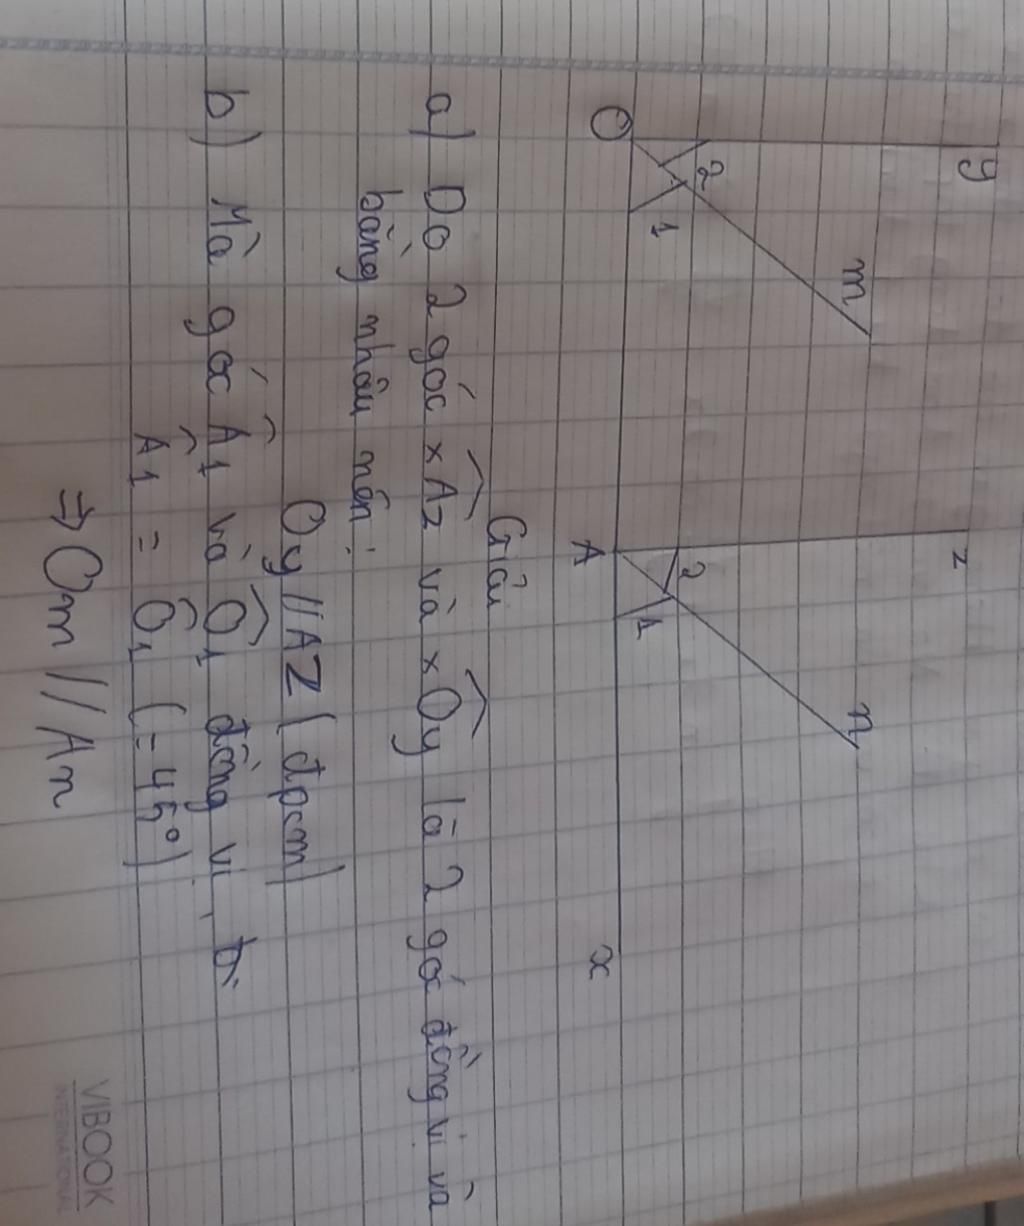 y
m
2
1
O
z
n
2
1
A
x
Giải
a) Do 2 góc xAz và xOy là 2 góc đồng vị và
bằng nhau nên:
Oy // AZ (đpcm)
b) Mà góc Â1 và Ô1 đồng vị,
Â1 = Ô1 (= 45°)
⇒ Om // An
VIBOOK
INTERNATIONAL